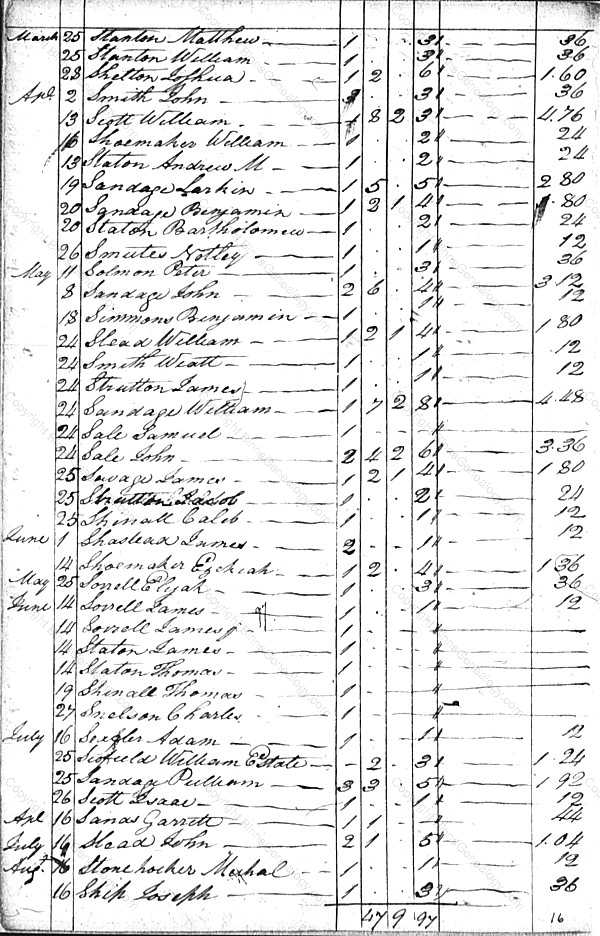 March 25 Stanton Matthew 1 . . 3 36
25 Stanton William 1 . . 3 36
28 Shelton Joshua 1 2 . 6 1.60
Apl. 2 Smith John . . 3 36
13 Scott William 8 2 3 4.76
16 Shoemaker William 1 . . 2 24
13 Staton Andrew M 1 . . 2 24
19 Sandage Larkin 1 5 . 5 2 80
20 Sandage Benjamin 1 2 1 4 1.80
20 Staton Bartholomew 1 . . 2 24
26 Smutes Notley 1 . . 1 12
May 11 Solmon Peter 1 . . 3 36
8 Sandage John 2 6 . 4 3 12
18 Simmons Benjamin 1 . . 1 12
24 Slead William 1 2 1 4 1 80
24 Smith Wiatt 1 . . 1 12
24 Strutton James 1 . . 1 12
24 Sandage William 1 7 2 8 4.48
24 Sale Samuel 1 . .
24 Sale John 2 4 2 6 3.36
25 Savage James 1 2 1 4 1 80
25 Strutton Jacob 1 . . 2 24
25 Shinall Caleb 1 . . 1 12
June 1 Shaslead James 2 . . 1 12
14 Shoemaker Ezekiah 1 2 . 4 1 36
May 25 Sorrell Elijah 1 . . 3 36
June 14 Sorrell James 1 . . 1 12
14 Sorrell James j 1 . .
14 Staton James 1 . .
14 Staton Thomas 1 . .
19 Shinall Thomas 1 . .
27 Snelson Charles 1 . .
July 16 Adam 1 . . 1 12
25 Scofield William Estate - 2 . 3 1.24
25 Sandage Pulliam 3 3 . 5 1 92
26 Scott Isaac 1 . . 1 12
Apl 16 Sands Garrett 1 1 . 44
July 16 Slead John 2 1 . 5 1.04
Augt 16 Stonehocker Michal 1 . . 1 12
16 Ship Joseph 1 . . 3 36
47 9 97 16